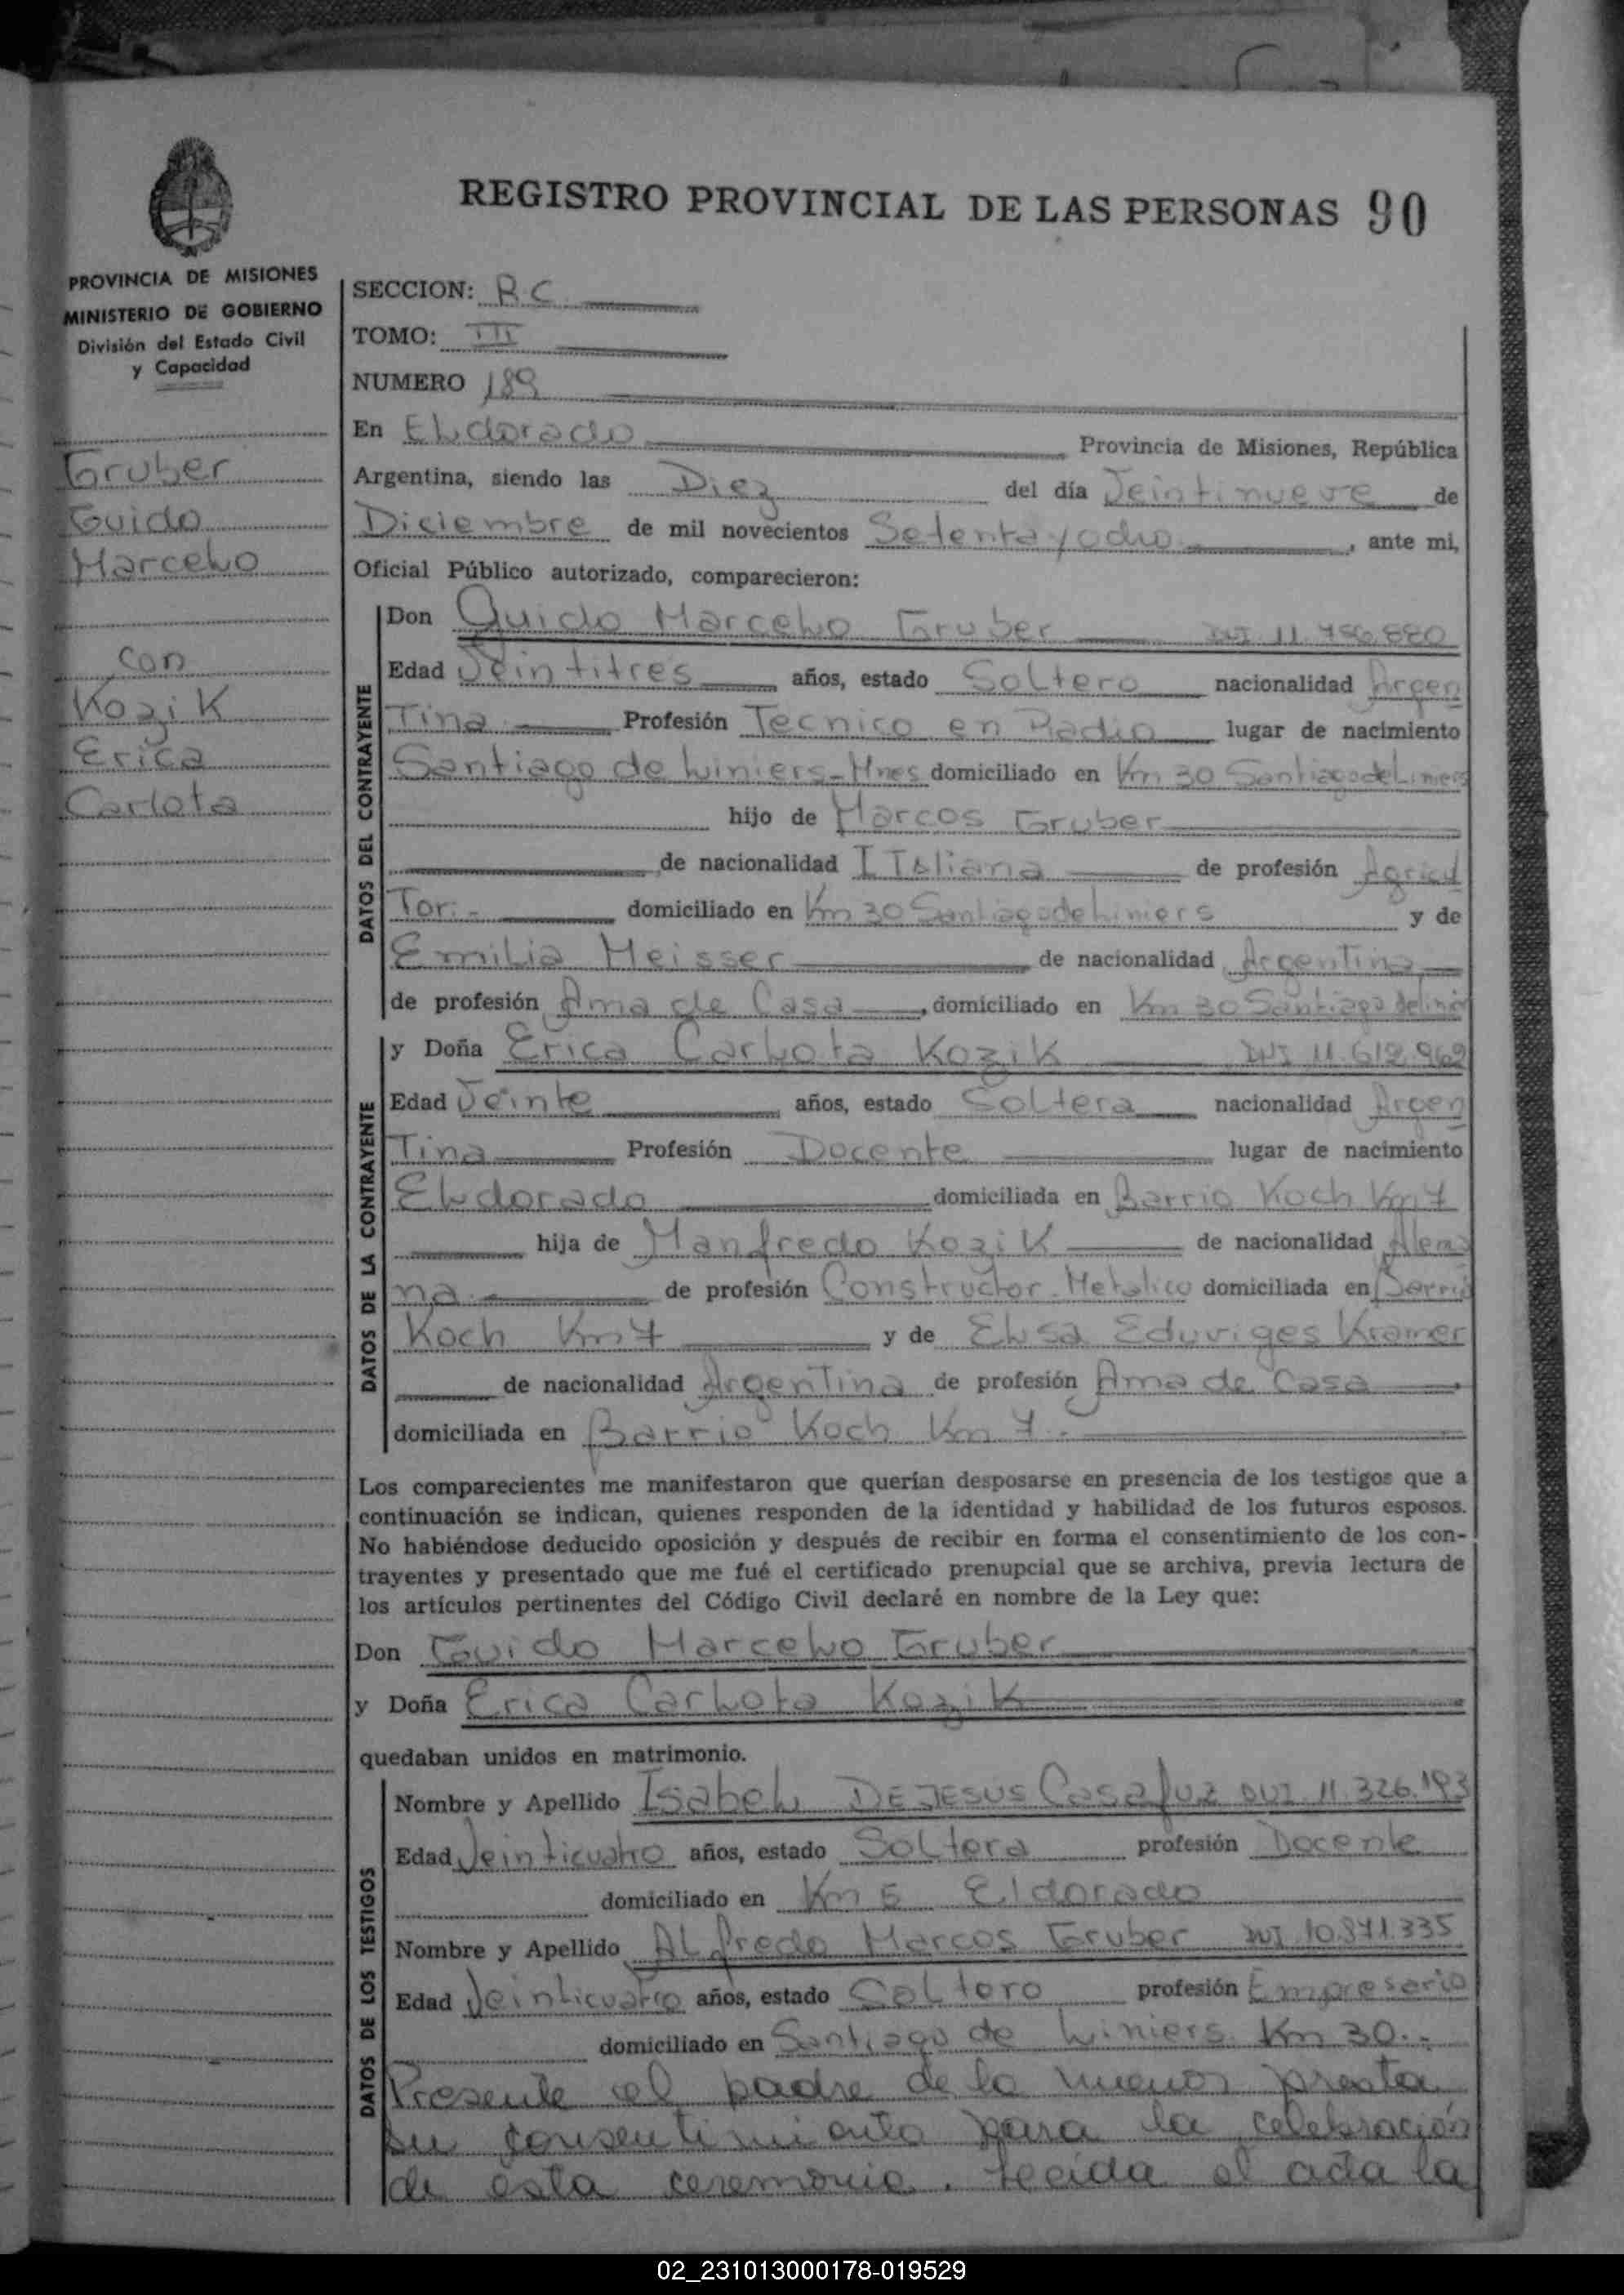 REGISTRO PROVINCIAL DE LAS PERSONAS 90
PROVINCIA DE MISIONES
MINISTERIO DE GOBIERNO
División del Estado Civil
y Capacidad
Gruber
Guido
Marcelo
con
Kozik
Erica
Carlota
SECCION: R.C.
TOMO: III
NUMERO 189
En Eldorado Provincia de Misiones, República
Argentina, siendo las Diez del día Veintinueve de
Diciembre de mil novecientos Setenta y ocho, ante mi,
Oficial Público autorizado, comparecieron:
DATOS DEL CONTRAYENTE
Don Guido Marcelo Gruber DNI 11.756.880
Edad Veintitres años, estado Soltero nacionalidad Argen
Tina Profesión Tecnico en Radio lugar de nacimiento
Santiago de Liniers-Mnes domiciliado en Km 30 Santiago de Liniers
hijo de Marcos Gruber
de nacionalidad ITaliana de profesión Agricul
Tor.- domiciliado en Km 30 Santiago de Liniers y de
Emilia Meisser de nacionalidad Argentina
de profesión Ama de Casa, domiciliado en Km 30 Santiago de
DATOS DE LA CONTRAYENTE
y Doña Erica Carlota Kozik DNI 11.612.969
Edad Veinte años, estado Soltera nacionalidad Argen
Tina Profesión Docente lugar de nacimiento
Eldorado domiciliada en Barrio Koch Km 7
hija de Manfredo Kozik de nacionalidad Alema
na de profesión Constructor Metalico domiciliada en Barrio
Koch Km 7 y de Elsa Eduviges Kramer
de nacionalidad Argentina de profesión Ama de Casa
domiciliada en Barrio Koch Km 7.-
Los comparecientes me manifestaron que querían desposarse en presencia de los testigos que a
continuación se indican, quienes responden de la identidad y habilidad de los futuros esposos.
No habiéndose deducido oposición y después de recibir en forma el consentimiento de los con-
trayentes y presentado que me fué el certificado prenupcial que se archiva, previa lectura de
los artículos pertinentes del Código Civil declaré en nombre de la Ley que:
Don Guido Marcelo Gruber
y Doña Erica Carlota Kozik
quedaban unidos en matrimonio.
DATOS DE LOS TESTIGOS
Nombre y Apellido Isabel DE JESUS Casafuz DNI. 11.326.193
Edad Veinticuatro años, estado Soltera profesión Docente
domiciliado en Km 5 Eldorado
Nombre y Apellido Alfredo Marcos Gruber DNI 10.871.335
Edad Veinticuatro años, estado Soltero profesión Empresario
domiciliado en Santiago de Liniers Km 30.-
Presente el padre de la menor presta
su consentimiento para la celebración
de esta ceremonia. Leida el acta la
02_231013000178-019529